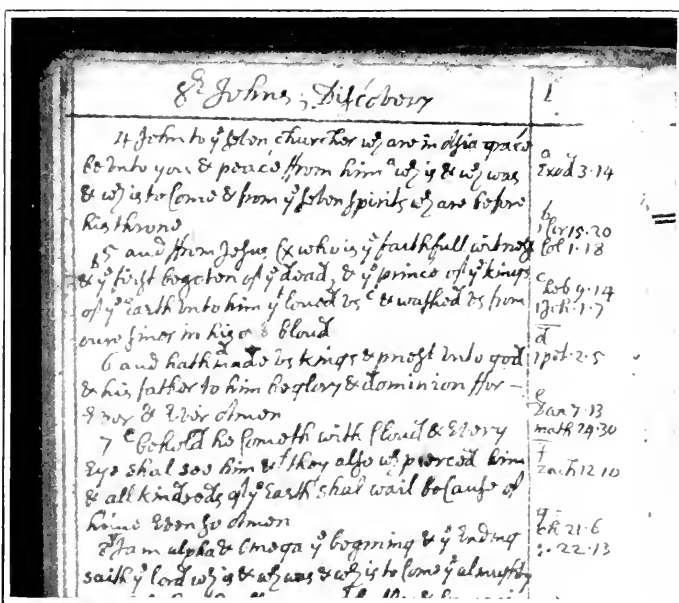 St Johns Discovery 1
4 John to ye seven churches wch are in Asia grace
be unto you & peace from him a wch is & wch was
& wch is to come & from ye seven spirits wch are before
his throne
b 5 and from Jesus Cx who is ye faithfull witness
& ye first begotten of ye dead, & ye prince of ye kings
of ye earth unto him yt loued vs c & washed vs from
oure sines in his bloud
6 and hath d made vs kings & priest vnto god
& his father to him be glory & dominion ffor –
Ever & Ever Amen
7 e behold he cometh with cloud & Every
Eye shal see him & f they also wch pierced him
& all kindreds of ye Earth shal wail because of
hime Even so Amen
8 I am alpha & Omega ye begining & ye Ending
saith ye lord wch is & wch was & wch is to come ye almighty
a
Exod 3·14
b
1 Cor 15·20
Col 1·18
c
heb 9·14
1 Joh·1·7
d
1 pet·2·5
e
Dan 7·13
math 24·30
f
Zach 12 10
g
ch 21·6
22·13